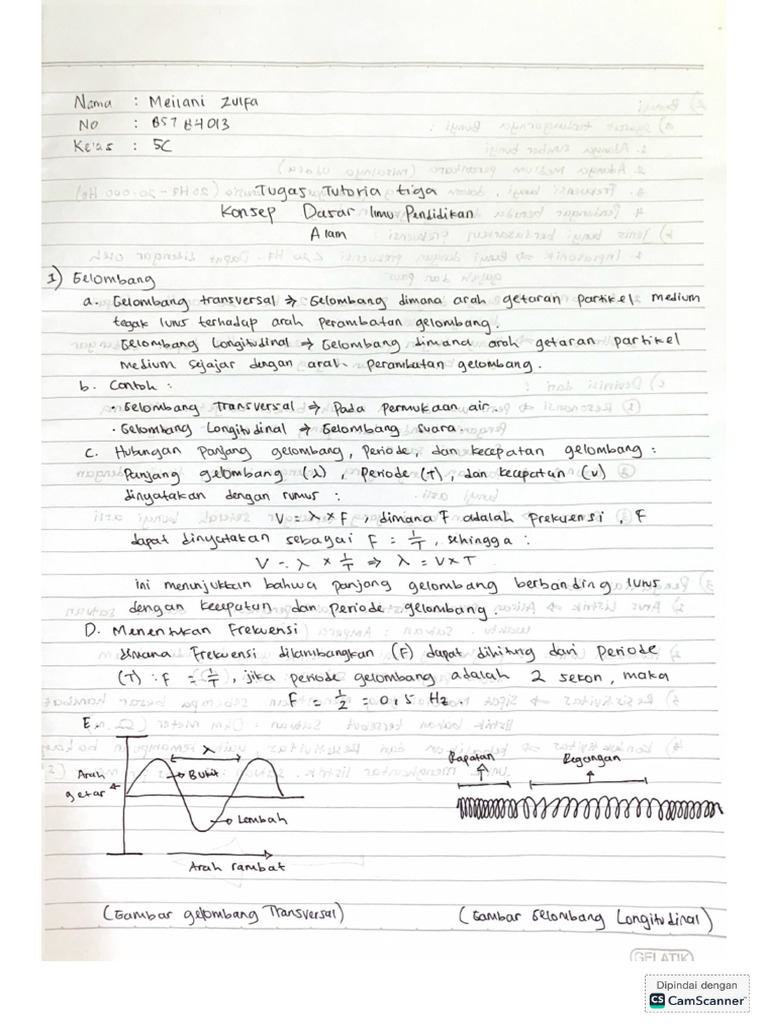 Nama : Meilani Zulfa
No : 857 84013
Kelas : 5C
Tugas Tutoria tiga
Konsep Dasar Ilmu Pendidikan
Alam
1) Gelombang
a. Gelombang transversal → Gelombang dimana arah getaran partikel medium
tegak lurus terhadap arah perambatan gelombang.
Gelombang Longitudinal → Gelombang dimana arah getaran partikel
medium sejajar dengan arah perambatan gelombang.
b. Contoh :
• Gelombang Transversal → Pada permukaan air.
• Gelombang Longitudinal → Gelombang suara.
c. Hubungan Panjang gelombang, Periode, dan kecepatan gelombang :
Panjang gelombang (λ), Periode (T), dan kecepatan (v)
dinyatakan dengan rumus :
V = λ × F, dimana F adalah Frekuensi, F
dapat dinyatakan sebagai F = 1/T, sehingga :
V = λ × 1/T ⇒ λ = V × T
ini menunjukkan bahwa panjang gelombang berbanding lurus
dengan kecepatan dan periode gelombang.
D. Menentukan Frekuensi
dimana Frekuensi dilambangkan (F) dapat dihitung dari Periode
(T) : F = 1/T, jika periode gelombang adalah 2 sekon, maka
F = 1/2 = 0,5 Hz.
E.
λ
Arah getar
Bukit
Lembah
Arah rambat
Rapatan
Regangan
(Gambar gelombang Transversal)
(Gambar Gelombang Longitudinal)
GELATIK
Dipindai dengan
CS CamScanner